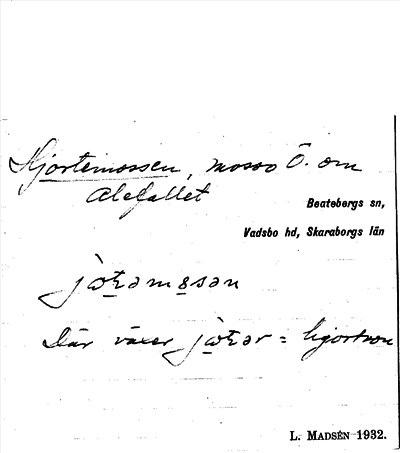 Hjortemossen, mosse Ö. om
Alefallet
Beatebergs sn,
Vadsbo hd, Skaraborgs län
Där växer = hjortron
L. MADSÉN 1932.